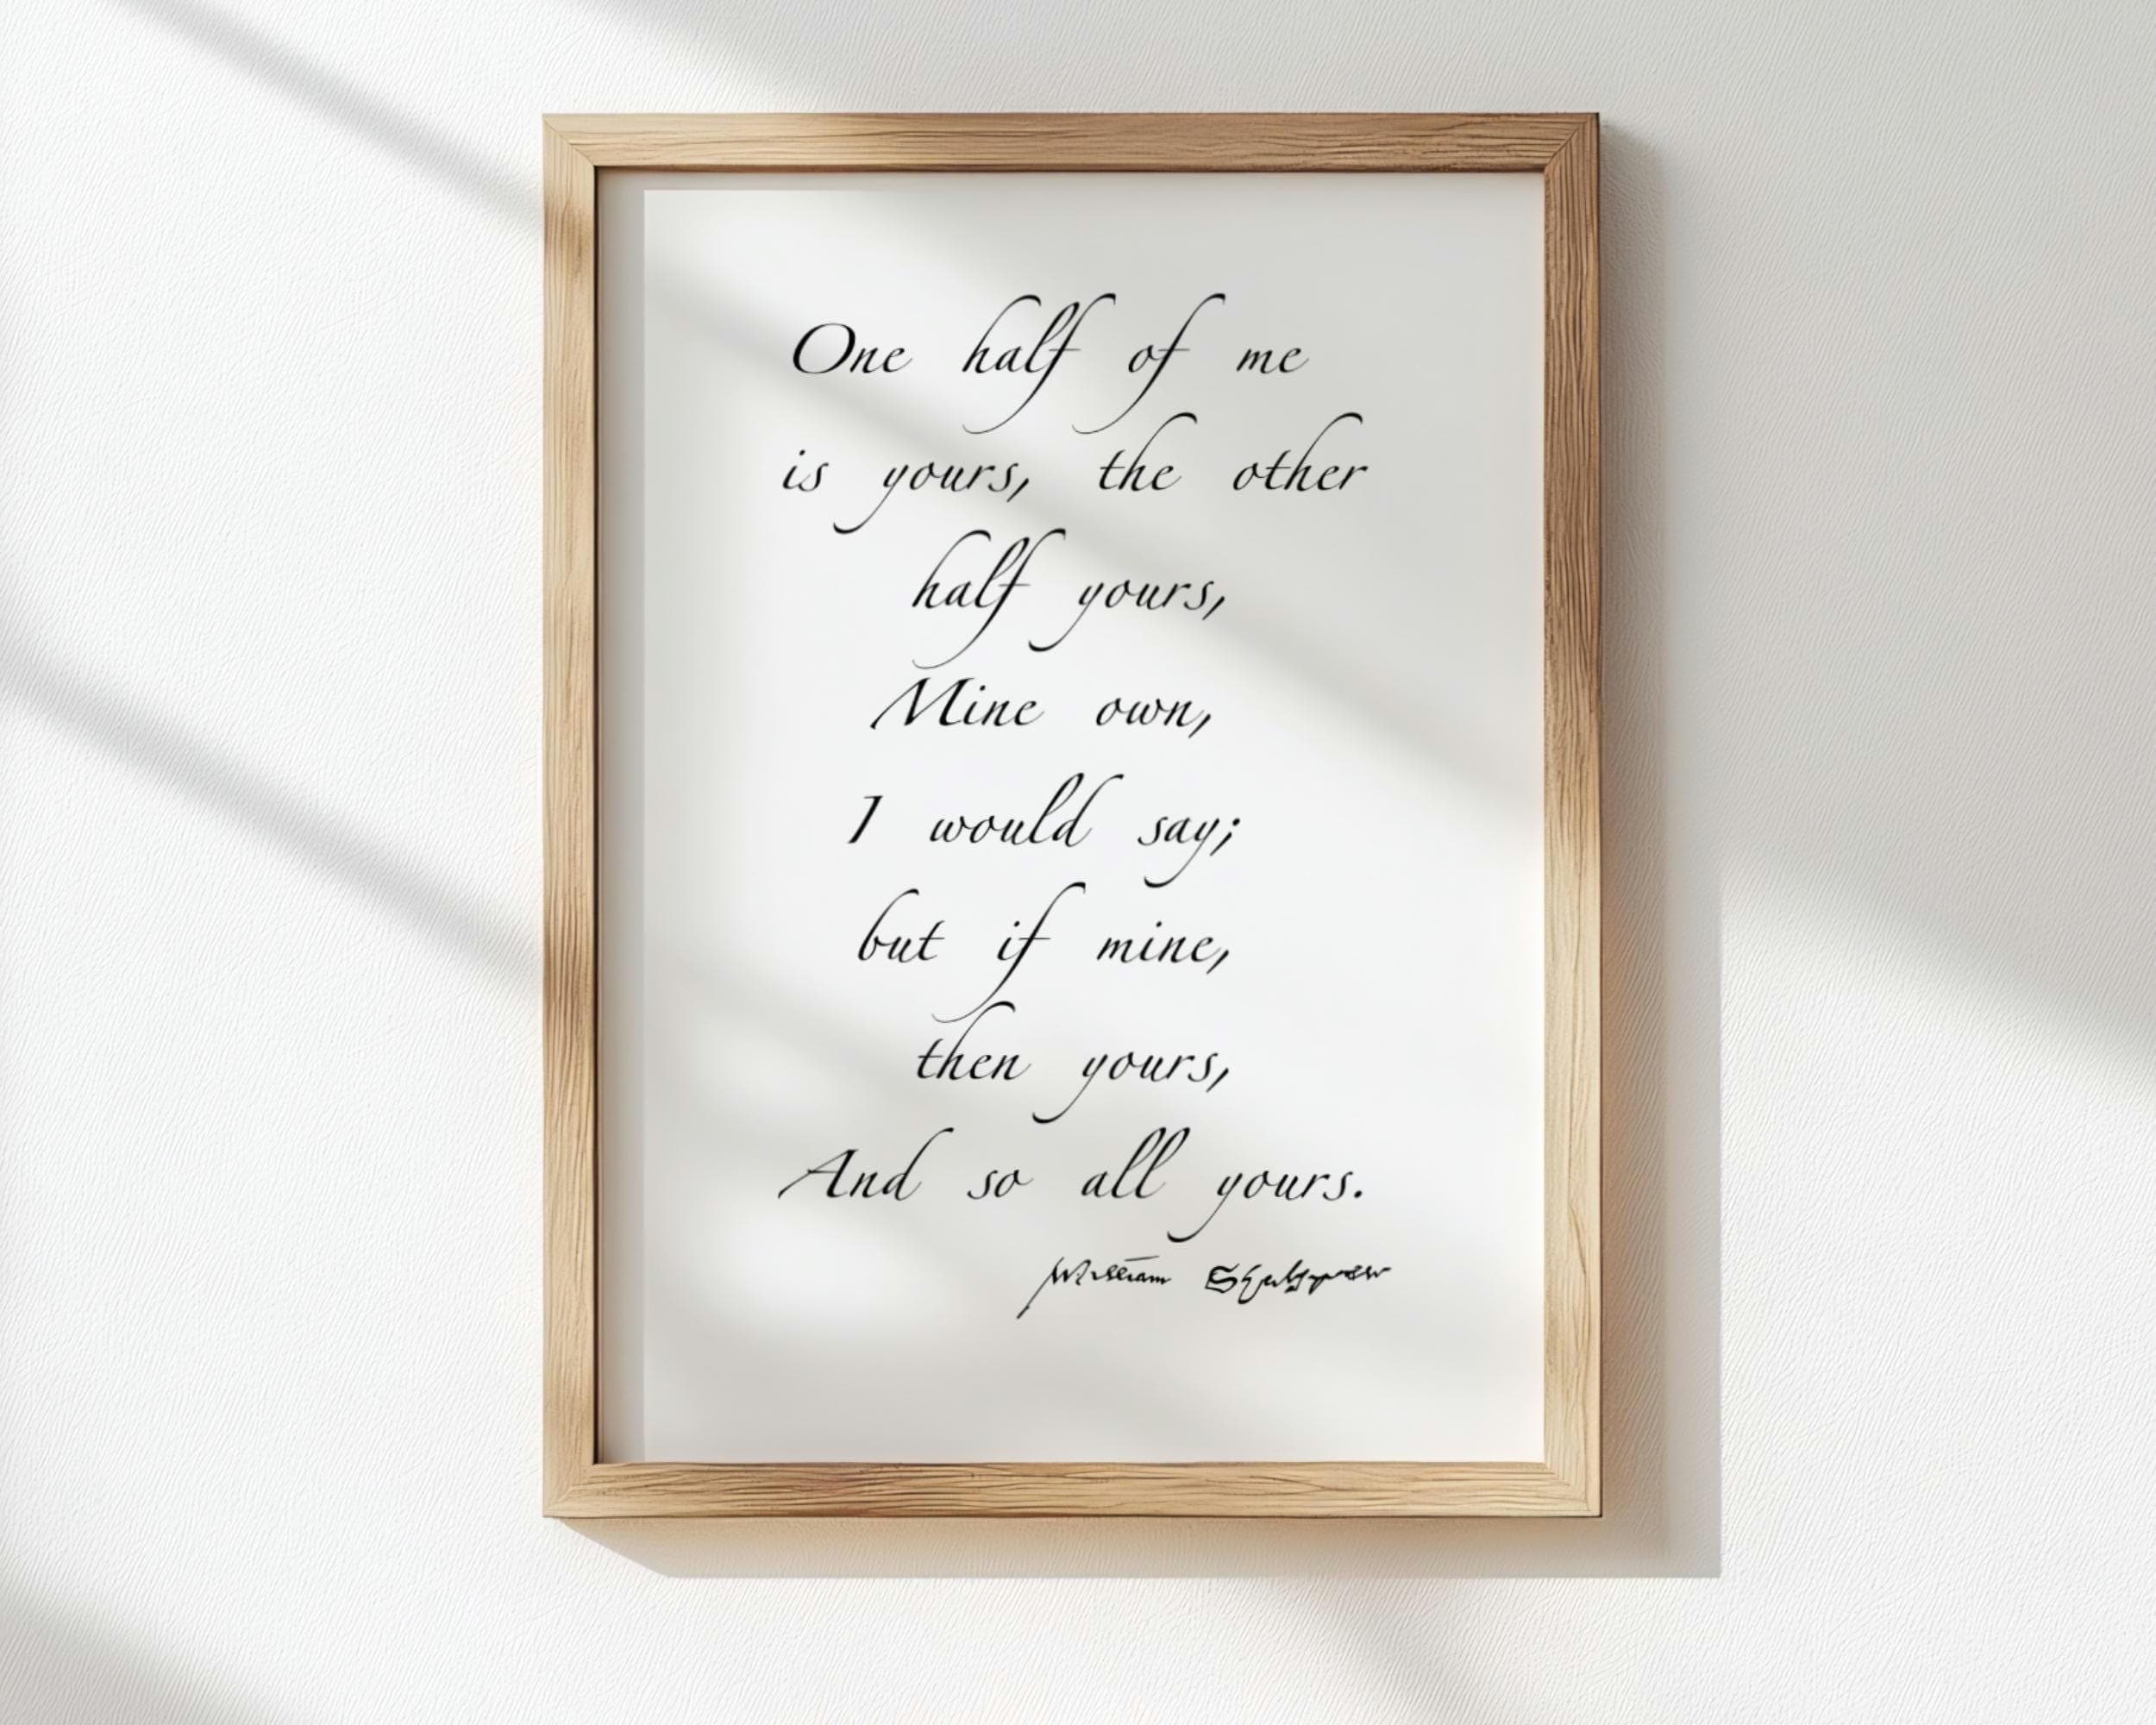 One half of me
is yours, the other
half yours,
Mine own,
I would say;
but if mine,
then yours,
And so all yours.
William Shakspeare